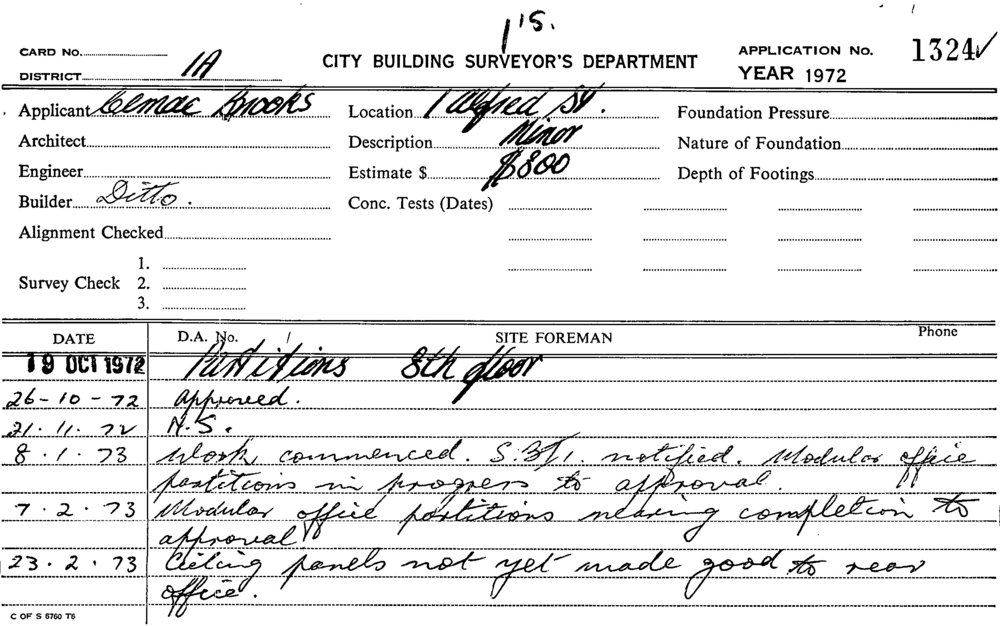 1's.
CARD No.
DISTRICT 1A
CITY BUILDING SURVEYOR'S DEPARTMENT
APPLICATION No. 1324✓
YEAR 1972
Applicant Clemac Brooks
Location 1 Alfred St.
Foundation Pressure
Architect
Description Minor
Nature of Foundation
Engineer
Estimate $ $800
Depth of Footings
Builder Ditto.
Conc. Tests (Dates)
Alignment Checked
Survey Check
1.
2.
3.
DATE D.A. No. / SITE FOREMAN Phone
19 OCT 1972 Partitions 8th floor
26-10-72 approved.
21.11.72 N.S.
8.1.73 Work commenced. S.B/I. notified. Modular office
partitions in progress to approval.
7.2.73 Modular office partitions nearing completion to
approval
23.2.73 Ceiling panels not yet made good to rear
office.
C OF S 6760 T6